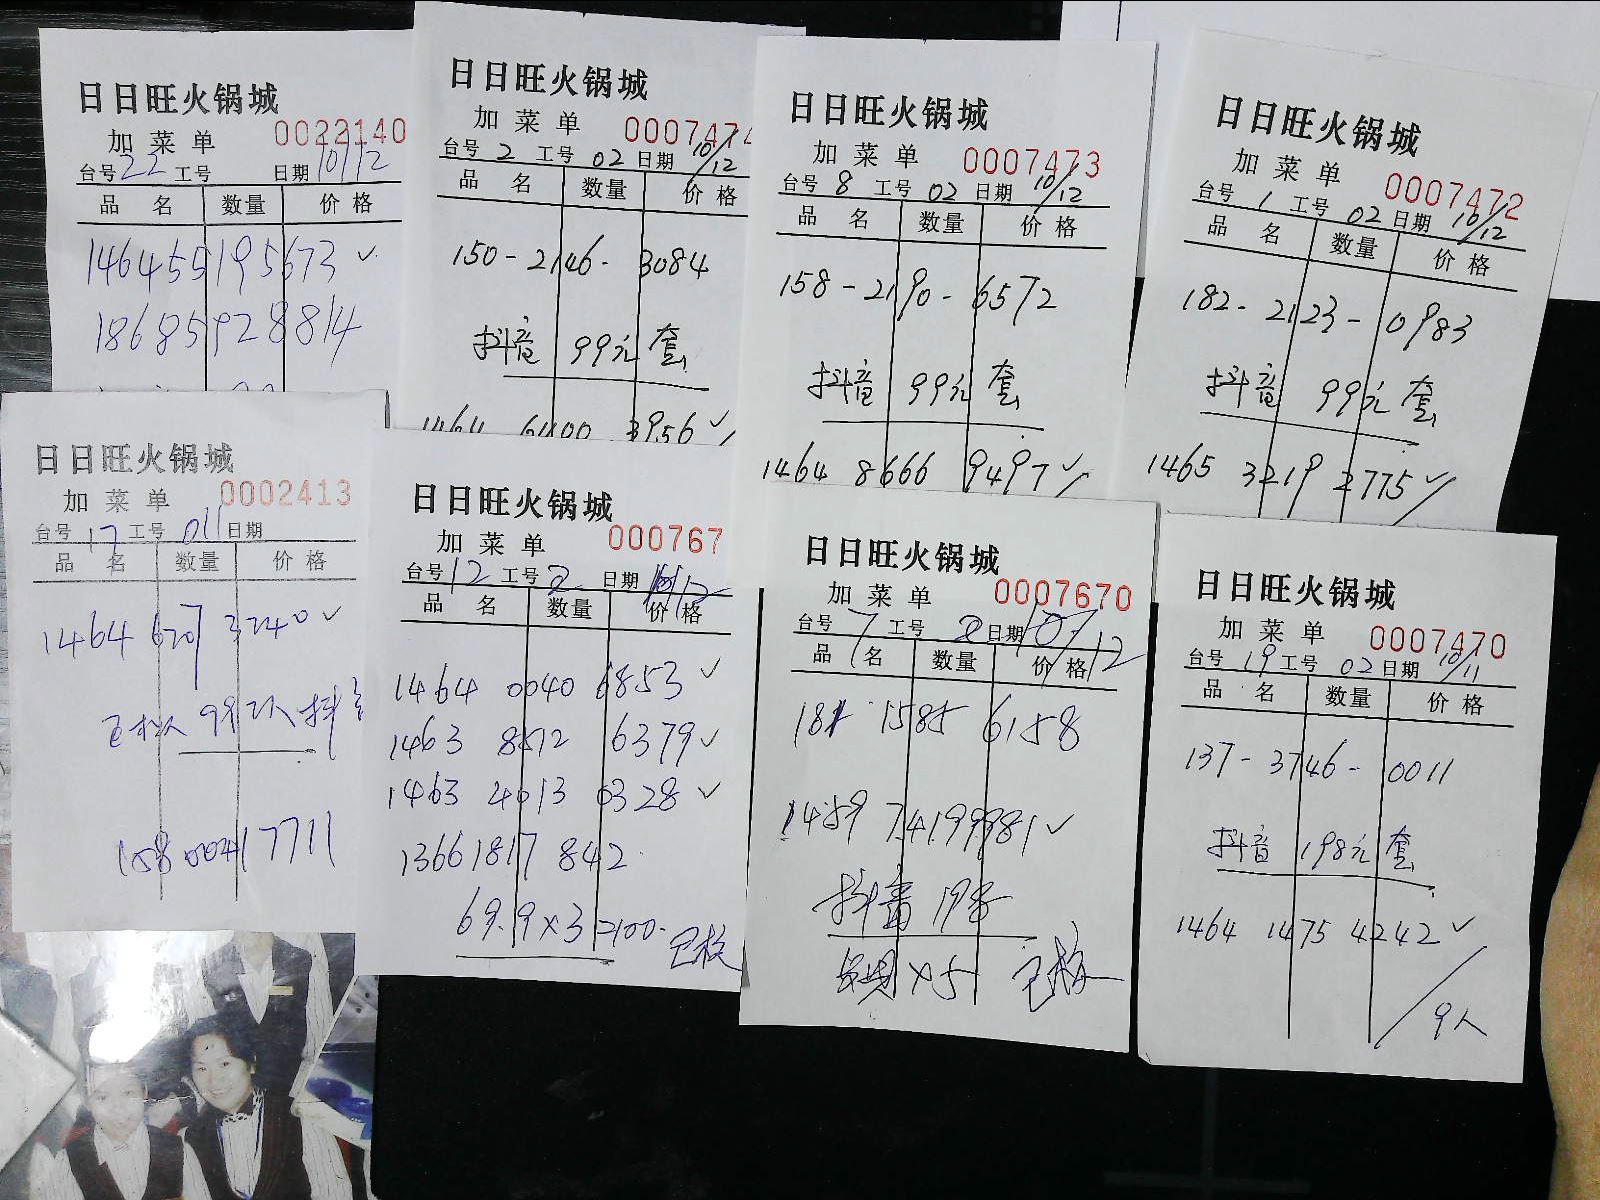 日日旺火锅城
加菜单 0022140
台号 22 工号 日期 10/12
品名 数量 价格
146455195673 ✓
18685928814
日日旺火锅城
加菜单 0007474
台号 2 工号 02 日期 10/12
品名 数量 价格
150-2146-3084
抖音 99元 套
1464 6400 3956 ✓
日日旺火锅城
加菜单 0007473
台号 8 工号 02 日期 10/12
品名 数量 价格
158-2190-6572
抖音 99元 套
1464 8666 9497 ✓
日日旺火锅城
加菜单 0007472
台号 1 工号 02 日期 10/12
品名 数量 价格
182-2123-0983
抖音 99元 套
1465 3219 2775 ✓
日日旺火锅城
加菜单 0002413
台号 17 工号 011 日期
品名 数量 价格
1464 6707 3240 ✓
抖音
15800417711
日日旺火锅城
加菜单 000767
台号 12 工号 2 日期 10/12
品名 数量 价格
1464 0040 6853 ✓
1463 8512 6379 ✓
1463 4013 0328 ✓
13661817842
69.9×3=200. 已核
日日旺火锅城
加菜单 0007670
台号 7 工号 2 日期 10/12
品名 数量 价格
181 1585 6158
1459 74199981 ✓
抖音 198
×5 已核
日日旺火锅城
加菜单 0007470
台号 19 工号 02 日期 10/11
品名 数量 价格
137-3746-0011
抖音 198元 套
1464 1475 4242 ✓
9人